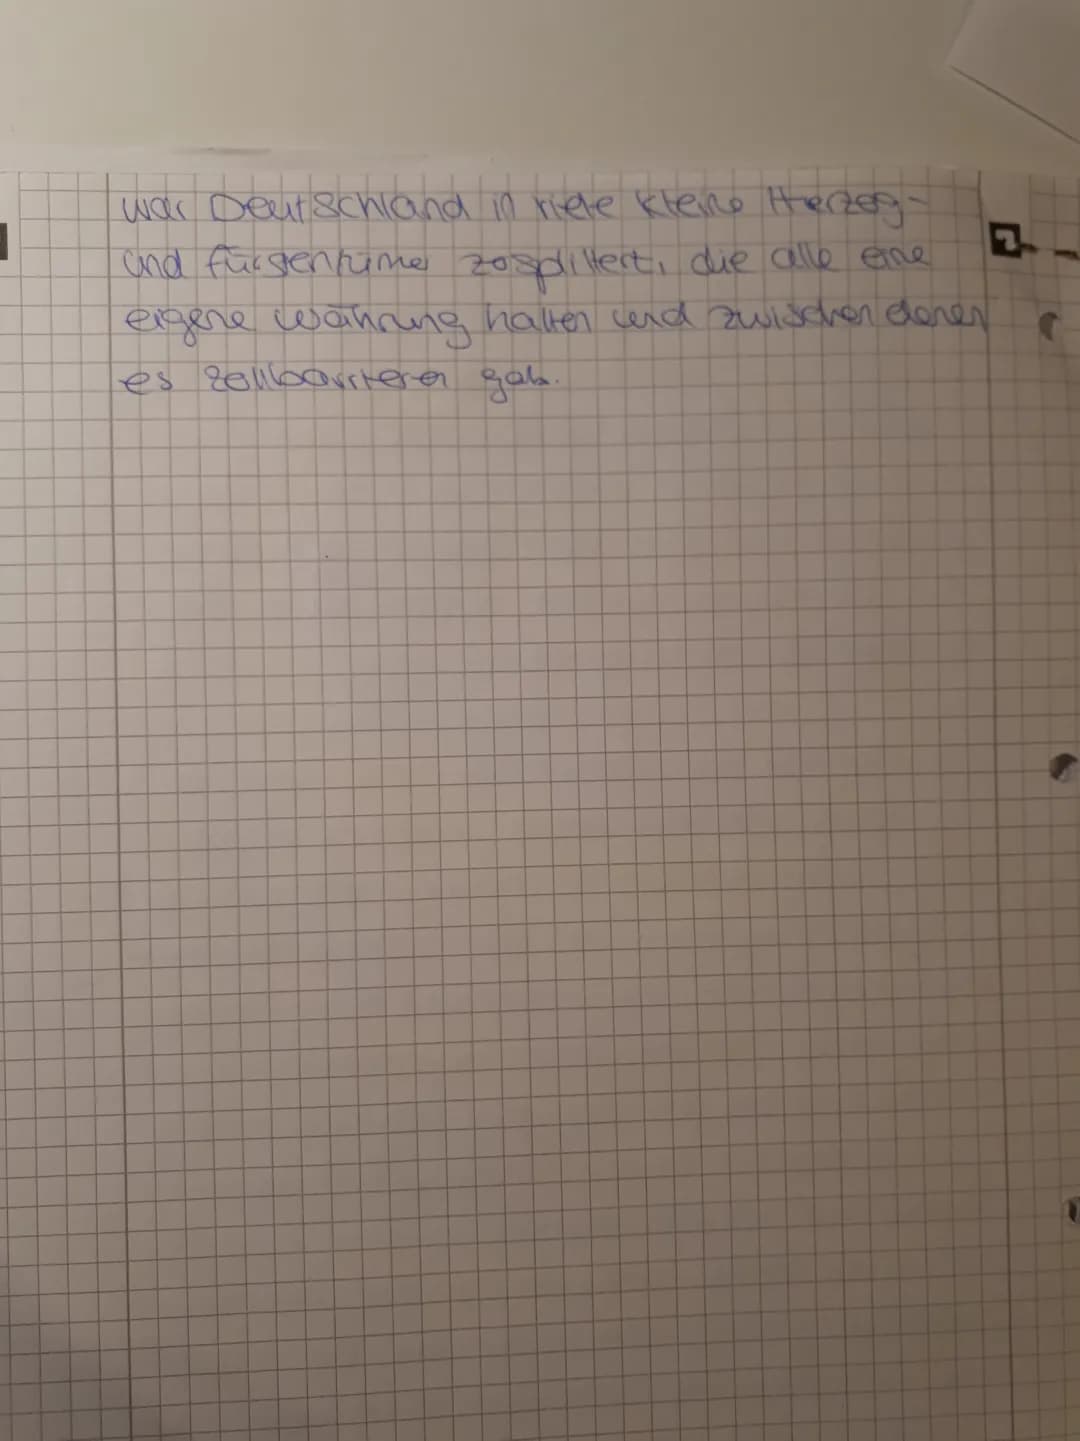 war Deutschland in viele kleine Herzog-
und fürstentümer zosplittert, die alle eine
eigene währung hatten und zwischen denen
es zollbarrieren gab.